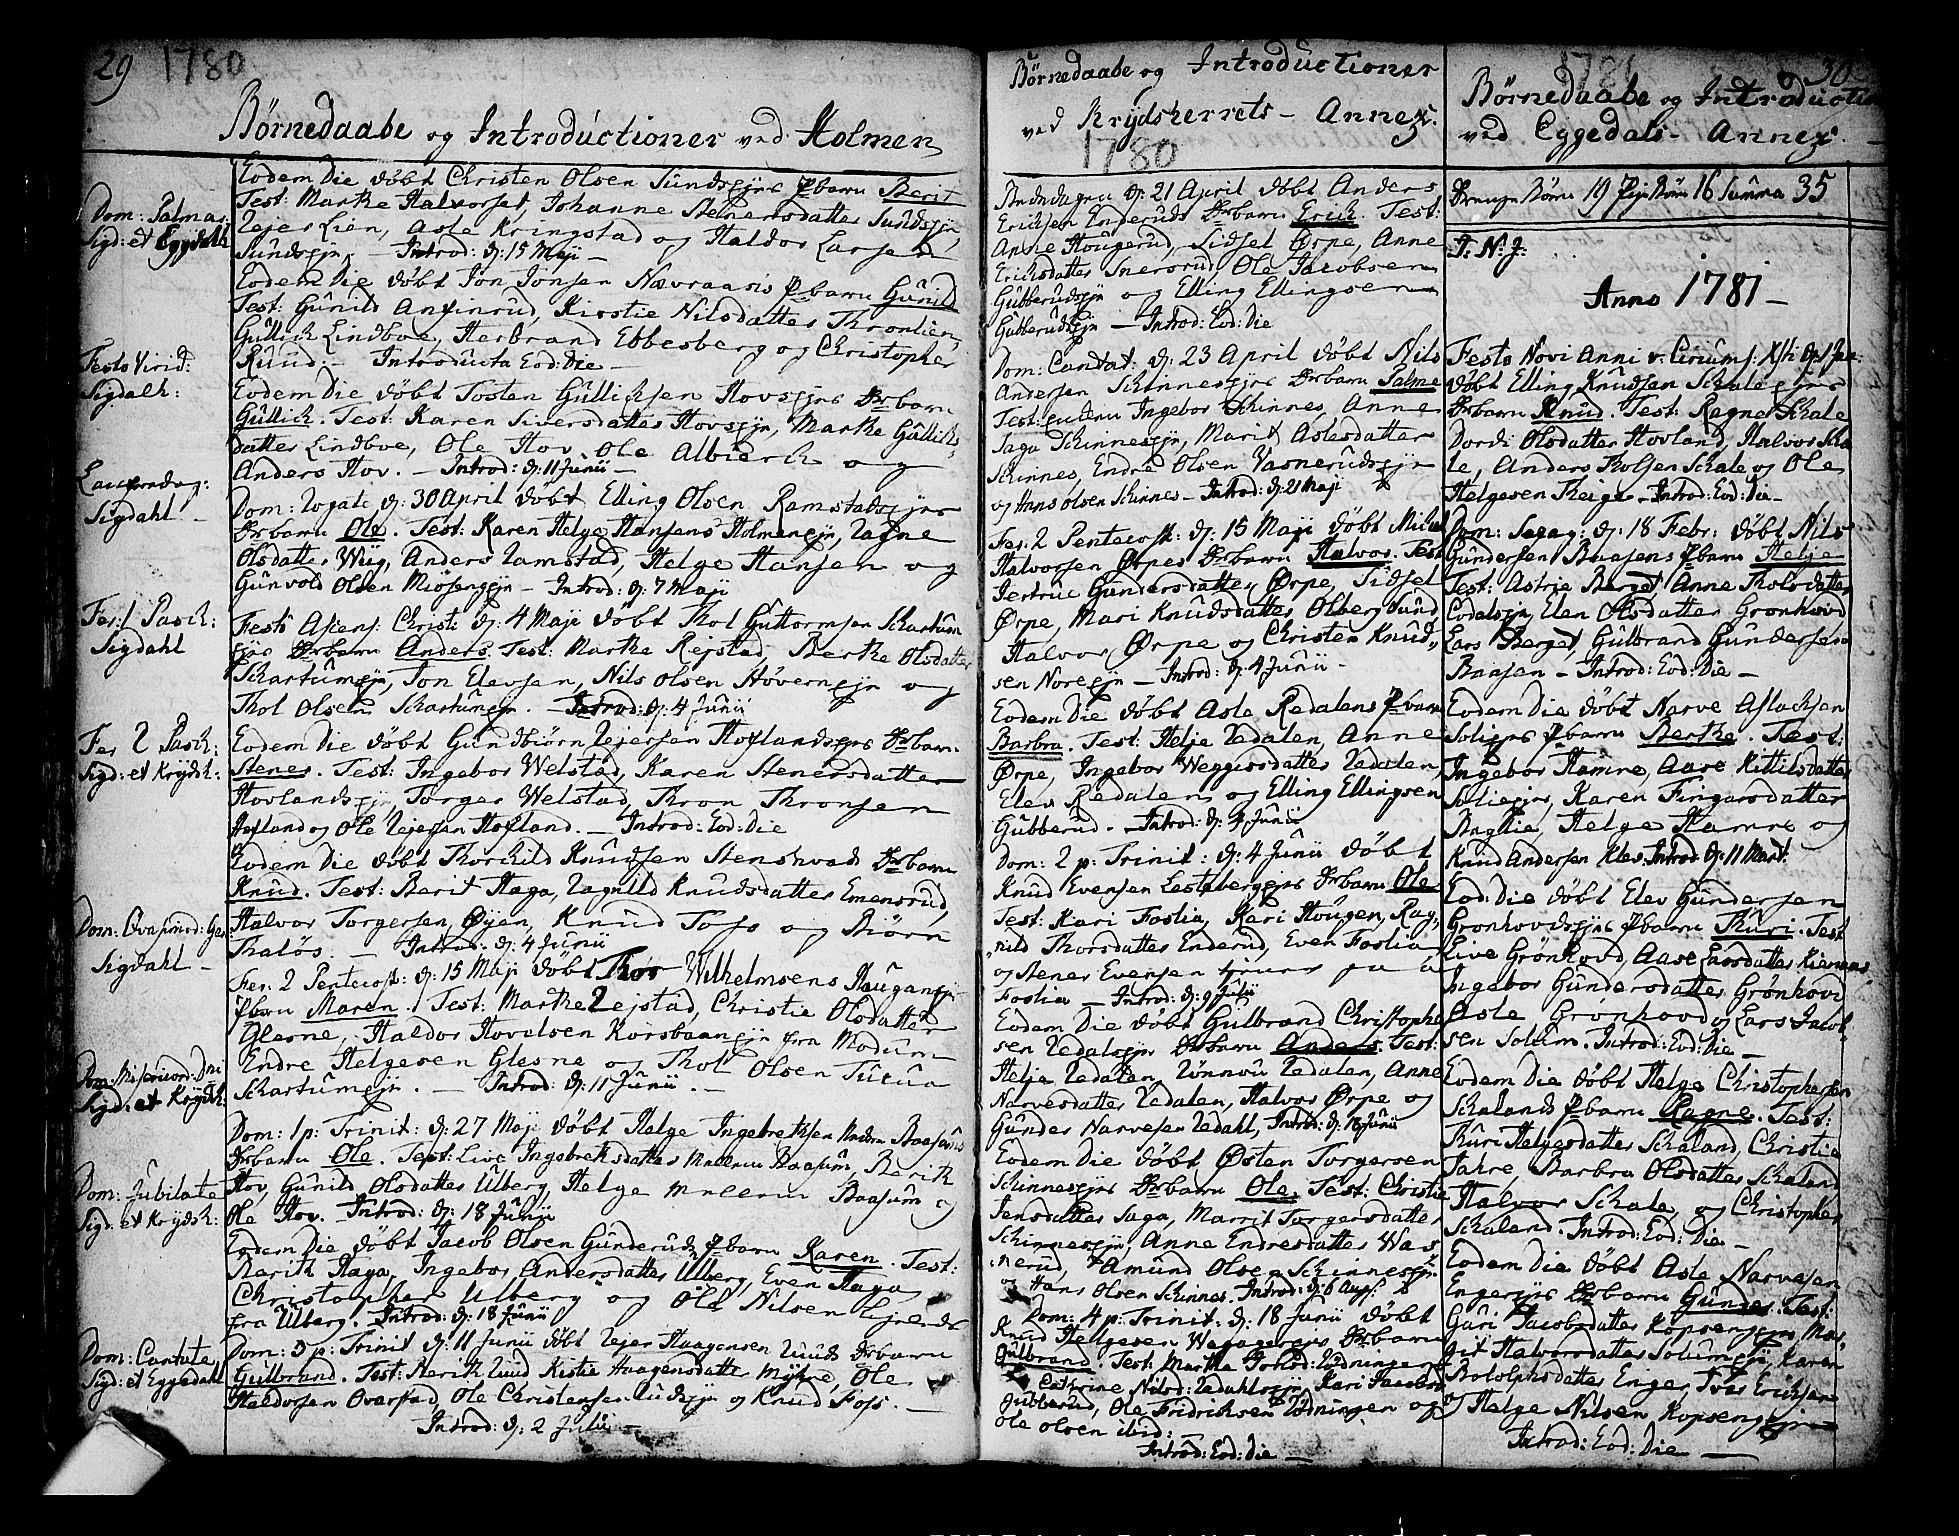 29 1780
Børnedaabe og Introductioner ved Holmen
Dom: Palmar:
Sigd: et Eggedahl
Festo Virid:
Sigdalh:
Sigdahl
Fer: 1 Pasch:
Sigdahl
Fer 2 Pasch:
Sigd: et Krydsh:
Dom: Qvasimod: Gen:
Sigdahl
Dom: Misericord: Dni
Sigd: et Krydsh:
Dom: Jubilate
Sigd: et Krydsh:
Dom: Cantate
Sigd: et Eggedahl
Eodem Die døbt Christen Olsen Sundsejes Pbarn Berit
Test: Marthe Halvorset, Johanne Stenersdatter Sundsejn,
Rejer Lien, Asle Kringstad og Haldor Larsen
Sundsejn – Introd: d: 15 Maji –
Eodem Die døbt Jon Jonsen Nævraaes Pbarn Gunild
Test: Gunild Anfinrud, Kirstie Nilsdatter Thronlien,
Gullich Lindboe, Herbrand Ebbesberg og Christopher
Ruud. – Introducta Eod: Die –
Eodem Die døbt Tosten Gullichsen Hovsejes Drbarn
Gullich. Test: Karen Siversdatter Hovsejn, Marthe Gullichs
datter Lindboe, Ole Hov, Ole Albierch og
Anders Hov. – Introd: d: 11 Junii –
Dom: Rogate d: 30 April døbt Elling Olsen Ramstadsejes
Drbarn Ole. Test: Karen Helge Hansens Holmenejn, Ragne
Olsdatter Wiig, Anders Ramstad, Helge Hansen og
Gunvold Olsen Miosensejn – Introd: d: 7 Maji
Festo Ascens: Christi d: 4 Maji døbt Thol Guttormsen Schartum
ejes Drbarn Anders. Test: Marthe Rejstad, Berthe Olsdatter
Schartumejn, Jon Elevsen, Nils Olsen Hovernejn og
Thol Olsen Schartumejn. – Introd: d: 4 Junii
Eodem Die døbt Gundbiørn Rejersen Hoflandsejes Drbarn
Stener. Test: Ingebor Welstad, Karen Stenersdatter
Hovlandsejn, Torger Welstad, Thron Thronsen
Hofland og Ole Rejersen Hofland. – Introd: Eod: Die
Eodem Die døbt Thorchild Knudsen Stenshvad Drbarn
Knud. Test: Berit Haga, Ragnild Knudsdatter Emensrud
Halvor Torgersen Øyen, Knud Foss og Biørn
Thaløs. – Introd: d: 4 Junii
Fer: 2 Pentecost: d: 15 Maji døbt Thor Wilhelmsens Haugan ejn
Pbarn Maren. Test: Marthe Rejstad, Christie Olsdatter
Glesne, Haldor Hovelsen Korsbaanejn fra Modum
Endre Helgesen Glesne og Thol Olsen Tucua
Schartumejn. – Introd: d: 11 Junii. –
Dom: 1 p: Trinit: d: 27 Maji døbt Helge Ingebrethsen Baasums
Drbarn Ole. Test: Live Ingebrethsdatter Mellem Baasum, Berith
Hov, Gunild Olsdatter Ulberg, Helge Mellem Baasum og
Ole Hov. Introd: d: 18 Junii
Eodem Die døbt Jacob Olsen Gunderuds Pbarn Karen. Test:
Berith Haga, Ingebor Andersdatter Ulberg, Even Haga,
Christopher Ulberg og Ole Nilsen
fra Ulberg. Introd: d: 18 Junii
Dom: 3 p: Trinit d: 11 Junii døbt Rejer Haagensen Ruuds Drbarn
Gulbrand. Test: Berith Ruud Kistie Haagensdatter Myhre, Ole
Haldorsen Overstad, Ole Christensen Ruudsejn og Knud Foss. –
Introd: d: 2 Julii –
Børnedaabe og Introductioner
ved Krydsherrets – Annex:
1780
d: 21 April døbt Anders
Erichsen Engeruds Drbarn Erich. Test:
Anne Hougerud, Sidsel Ørpe, Anne
Erichsdatter Snersrud, Ole Jacobsen
Gubberudsejn og Elling Ellingsen
Gubberudsejn – Introd: Eod: Die
Dom: Cantat: d: 23 April døbt Nils
Andersen Schinnesejes Drbarn Palme
Test: Ingebor Schinnes, Anne
Saga Schinnesejn, Marit Aslesdatter
Schinnes, Endre Olsen Vasnerudsejn
og Hans Olsen Schinnes – Introd: d: 21 Maji
Fer: 2 Pentecost: d: 15 Maji døbt Michel
Halvorsen Ørpes Drbarn Halvor. Test
Jertrue Gundersdatter Ørpe, Sidsel
Ørpe, Mari Knudsdatter Olbergsund
Halvor Ørpe og Christen Knud„
sen Noreejn – Introd: d: 4 Junii –
Eodem Die døbt Asle Redalens Pbarn
Barbra. Test: Helje Redalen, Anne
Ørpe, Ingebor Weggersdatter Redalen,
Elev Redalen og Elling Ellingsen
Gubberud. – Introd: d: 4 Junii
Dom: 2 p: Trinit: d: 4 Junii døbt
Knud Evensen Lestebergejes Drbarn Ole
Test: Kari Foslia, Kari Hougen, Rag„
nild Thorsdatter Enderud, Even Foslia
og Stener Evensen paa
Foslia – Introd: d: 9 Julii
Eodem Die døbt Gulbrand Christophe
sen Redalsejes Drbarn Anders. Test:
Helje Redalen, Rønnou Redalen, Anne
Narvesdatter Redalen, Halvor Ørpe og
Gunder Narvesen Redahl, Introd: d: 18 Junii
Eodem Die døbt Østen Torgersen
Schinnesejes Drbarn Ole. Test: Christie
Jensdatter Saga, Marrit Torgersdatter
Schinnesejn, Anne Endresdatter Was„
nerud, Amund Olsen Schinnesejn
og Hans Olsen Schinnes. Introd: d: 6 Aug:
Dom: 4 p: Trinit. d: 18 Junii døbt
Knud Helgesen Drbarn
Gulbrand. Test: Marthe
Cathrine Nilsd: Redahlsejn, Kari Jacobsd
Gubberud, Ole Fridrichsen Rødningen og
Ole Olsen ibid:
Introd: Eod: Die –
1781 30
Børnedaabe og Introductio
ved Eggedals – Annex: –
Drenge Børn 19 Pige Børn 16 Summa 35
T. N: J:
Anno 1781 –
Festo Novi Anni v: Circums: Xsti d: 1 Jan:
døbt Elling Knudsen Schale ejes
Drbarn Knud. Test: Ragner Schale
Dordi Olsdatter Hovland, Halvor Scha
le, Anders Tholfsen Schale og Ole
Helgesen Theige – Introd: Eod: Die –
Dom: Sexag: d: 18 Febr: døbt Nils
Gundersen Baasens Pbarn Helje
Test: Astrje Berget, Anne Tholsdatter
Eedalsejn, Elen Olsdatter Grønhovd
Lars Berget, Gulbrand Gundersen
Baasen – Introd: Eod: Die –
Eodem Die døbt Narve Aslachsen
Soliejes Pbarn Berthe. Test:
Ingebor Hamre, Aase Kittilsdatter
Soliejes, Karen Fingarsdatter
Baglie, Helge Hamre og
Knud Andersen Kles. Introd: d: 11 Mart.
Eod: Die døbt Elev Gundersen
Grønhovdsejes Pbarn Thuri. Test
Live Grønhovd, Aase Larsdatter
Ingebor Gundersdatter Grønhovd
Asle Grønhovd og Lars Jacob„
sen Solum. Introd: Eod: Die –
Eodem Die døbt Helge Christophersen
Schalands Pbarn Ragne. Test:
Thuri Helgesdatter Schaland, Christie
Jahre, Barbra Olsdatter Schaland
Halvor Schale, og Christopher
Schaland. Introd: Eod: Die –
Eodem Die døbt Asle Narvesen
Engerejes Drbarn Gunder. Test:
Guri Jacobsdatter Kopsengejn, Mar„
git Halvorsdatter Solumsejn, Karen
Botolphsdatter Enger, Iver Erichsen
og Helge Nilsen Kopsengejn
Introd: Eod: Die –